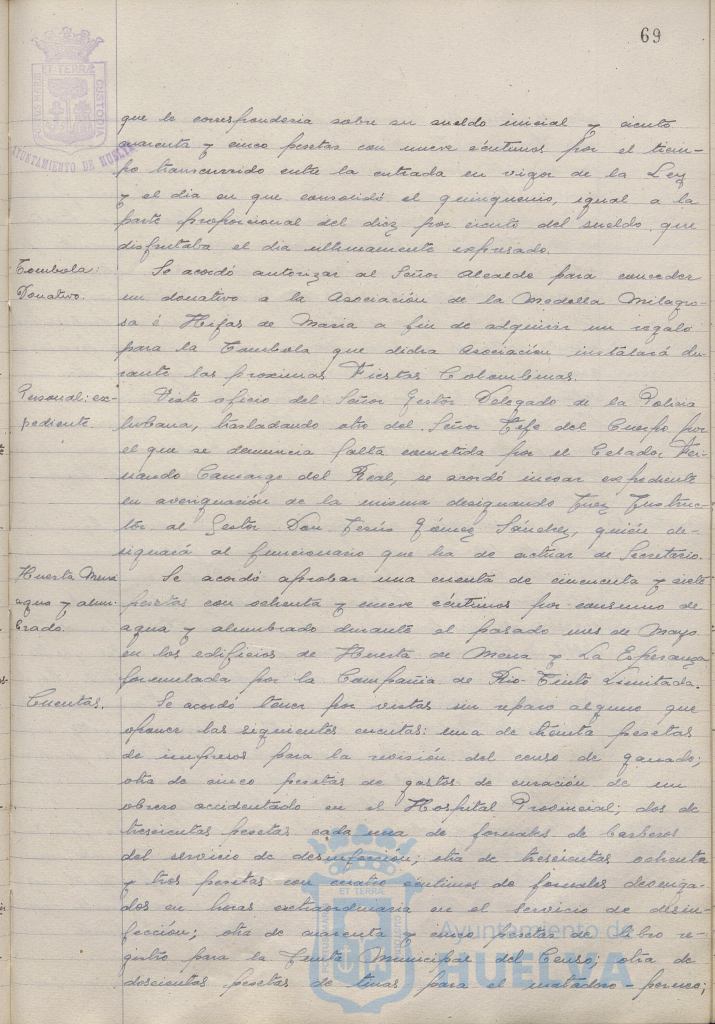 69
PORTUS MARIS ET TERRÆ CUSTODIA
AYUNTAMIENTO DE HUELVA
que le correspondería sobre su sueldo inicial y ciento
cuarenta y cinco pesetas con nueve céntimos por el tiem-
po transcurrido entre la entrada en vigor de la Ley
y el dia en que consolidó el quinquenio, igual a la
parte proporcional del diez por ciento del sueldo que
disfrutaba el dia ultimamente expresado.
Tombola:
Donativo.
Se acordó autorizar al Señor Alcalde para conceder
un donativo a la Asociación de la Medalla Milagro-
sa é Hijas de Maria a fin de adquirir un regalo
para la Tombola que dicha Asociación instalará du-
rante las proximas Fiestas Colombinas.
Personal: ex-
pediente.
Visto oficio del Señor Gestor Delegado de la Policia
Urbana, trasladando otro del Señor Jefe del Cuerpo por
el que se denuncia falta cometida por el Celador Fer-
nando Camargo del Real, se acordó incoar expediente
en averiguación de la misma designando Juez Instruc-
tor al Gestor Don Jesús Gómez Sánchez, quién de-
signará al funcionario que ha de actuar de Secretario.
Huerta Mena
agua y alum-
brado.
Se acordó aprobar una cuenta de cincuenta y siete
pesetas con ochenta y nueve céntimos por consumo de
agua y alumbrado durante el pasado mes de Mayo
en los edificios de Huerta de Mena y La Esperanza
formulada por la Compañia de Rio-Tinto Limitada.
Cuentas.
Se acordó tener por vistas sin reparo alguno que
oponer las siguientes cuentas: una de treinta pesetas
de impresos para la revisión del censo de ganado;
otra de cinco pesetas de gastos de curación de un
obrero accidentado en el Hospital Provincial; dos de
trescientas pesetas cada una de jornales de barberos
del servicio de desinfección; otra de trescientas ochenta
y tres pesetas con cuatro céntimos de jornales devenga-
dos en horas extraordinaria en el servicio de desin-
fección; otra de cuarenta y cinco pesetas de libro re-
gistro para la Junta Municipal del Censo; otra de
doscientas pesetas de tinas para el matadero-
Ayuntamiento de
HUELVA